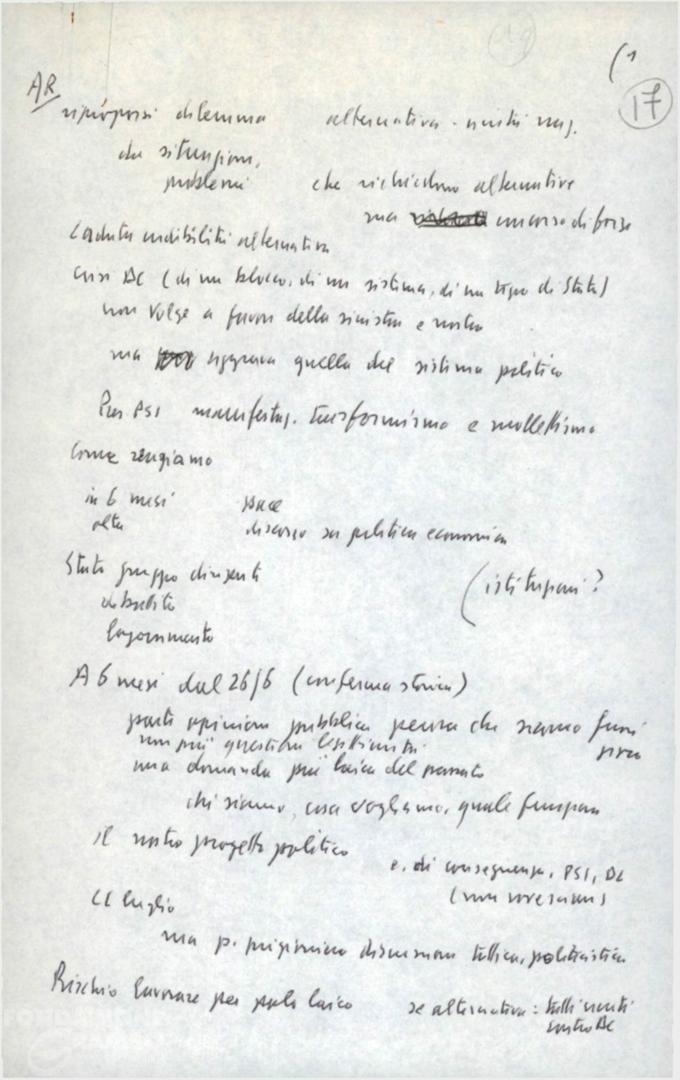 (1
17
AR
riproporsi dilemma alternativa -
da situazioni,
problemi che richiedono alternative
ma di forze
Caduta credibilità alternativa
Crisi DC (di un blocco, di un sistema, di un tipo di Stato)
non volge a favore della sinistra e nostro
ma aggrava quella del sistema politico
Per PSI trasformismo e mollettismo
Come reagiamo
in 6 mesi pace
discorso su politica economica
Stato gruppo dirigente
dibattito
logoramento
(istituzioni?
A 6 mesi dal 26/6 (conferma storica)
parte opinione pubblica pensa che siamo fuori
non più questione legittimità
ma domanda più laica del passato
chi siamo, cosa vogliamo, quale funzione
il nostro progetto politico
e, di conseguenza, PSI, DC
CC luglio
ma p. discussione tattica, politicistica
Rischio lavorare per polo laico se alternativa: tutti
contro DC